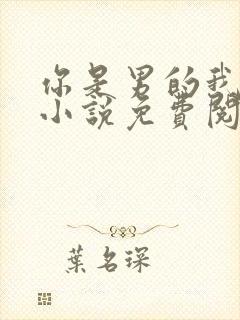 你是男的我
小說免費閱
葉名琛